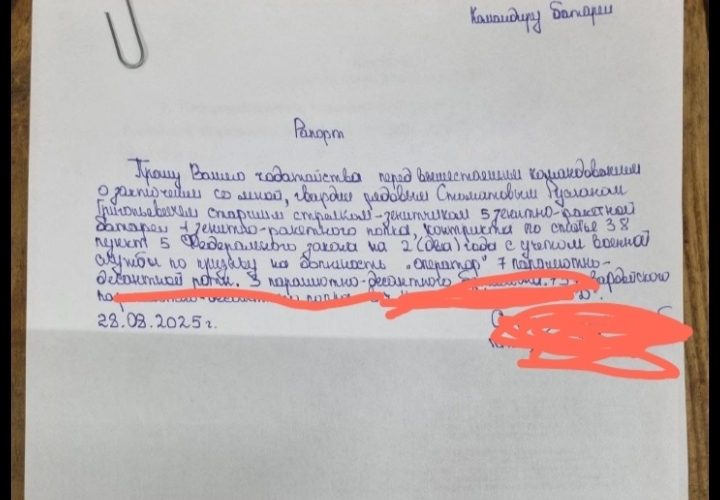 Командиру Батареи
Рапорт
Прошу Вашего ходатайства перед вышестоящим командованием
о заключении со мной, гвардии рядовым Стоматовым Русланом
Григорьевичем старшим стрелком-зенитчиком 5 зенитно-ракетной
батареи 1 зенитно-ракетного полка, контракта по статье 38
пункт 5 Федерального закона на 2 (два) года с учетом военной
службы по призыву на должность "оператор" 7 парашютно-
десантной роты. 3 парашютно-десантного
28.08.2025 г.